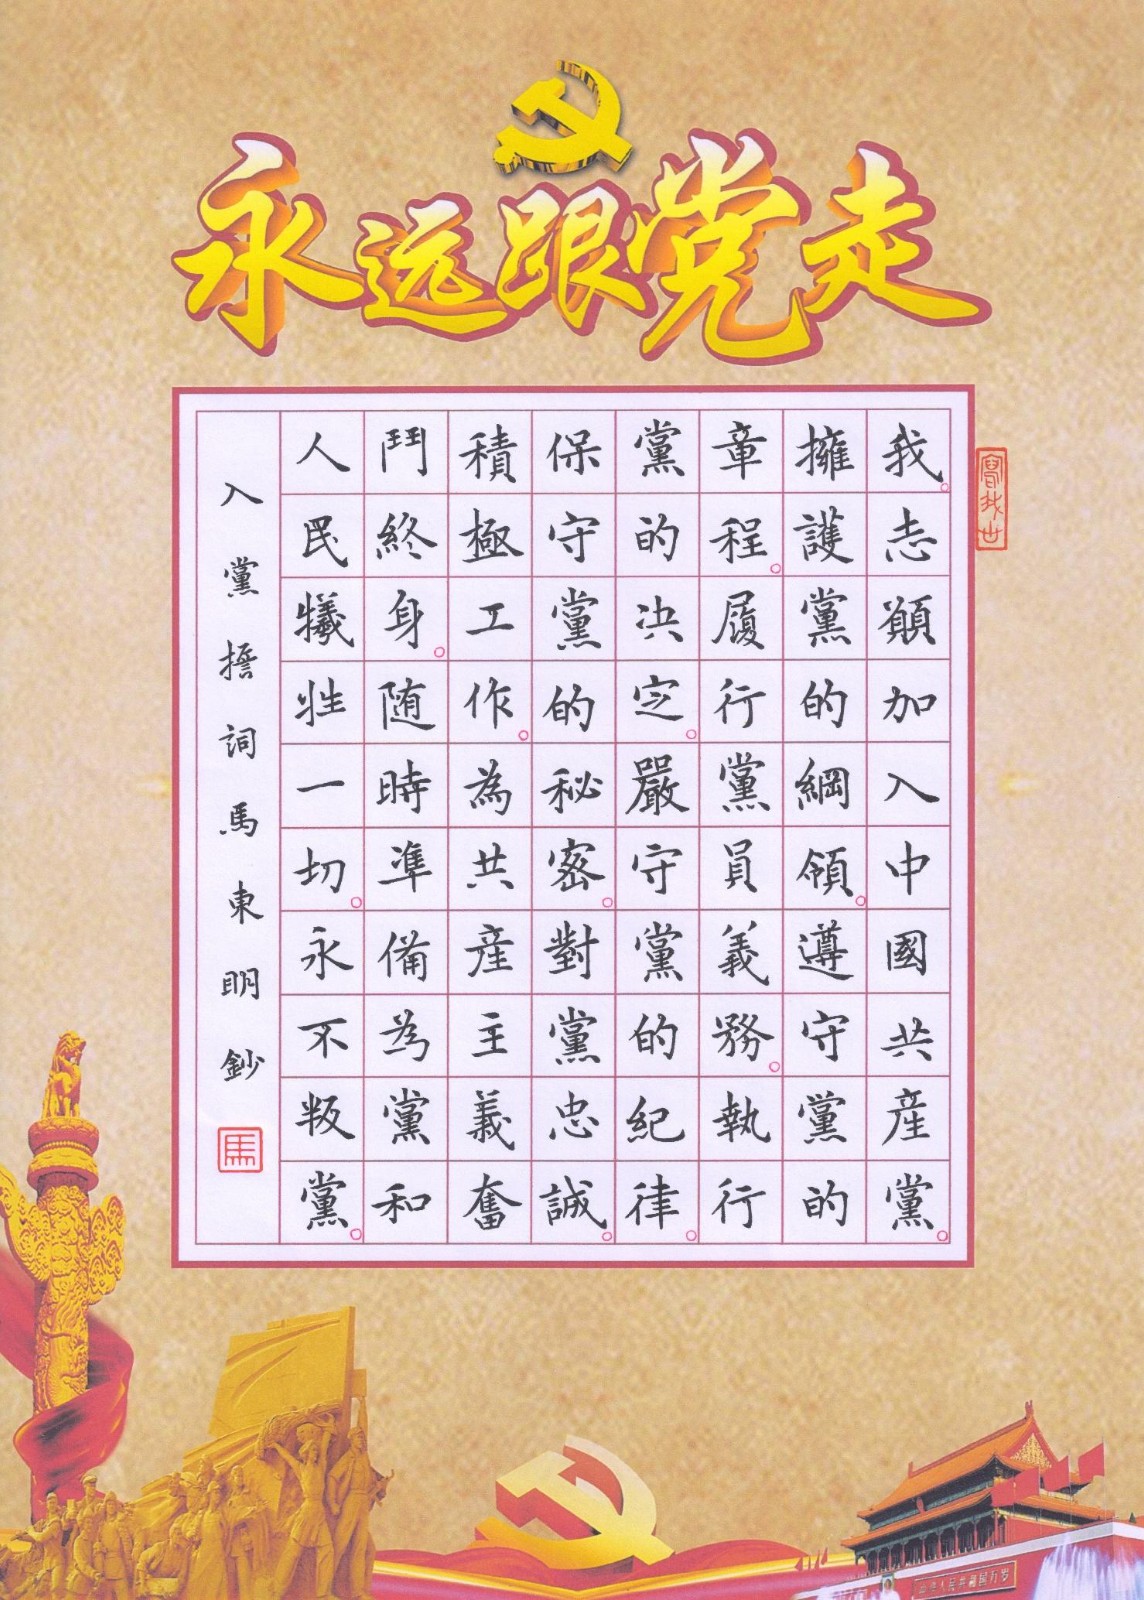 永远跟党走
我志願加入中國共産黨。
擁護黨的綱領。遵守黨的
章程。履行黨員義務。執行
黨的决定。嚴守黨的紀律。
保守黨的秘密。對黨忠誠。
積極工作。為共産主義奮
鬥終身。随時準備為黨和
人民犧牲一切。永不叛黨。
入黨擔詞馬東明鈔
馬